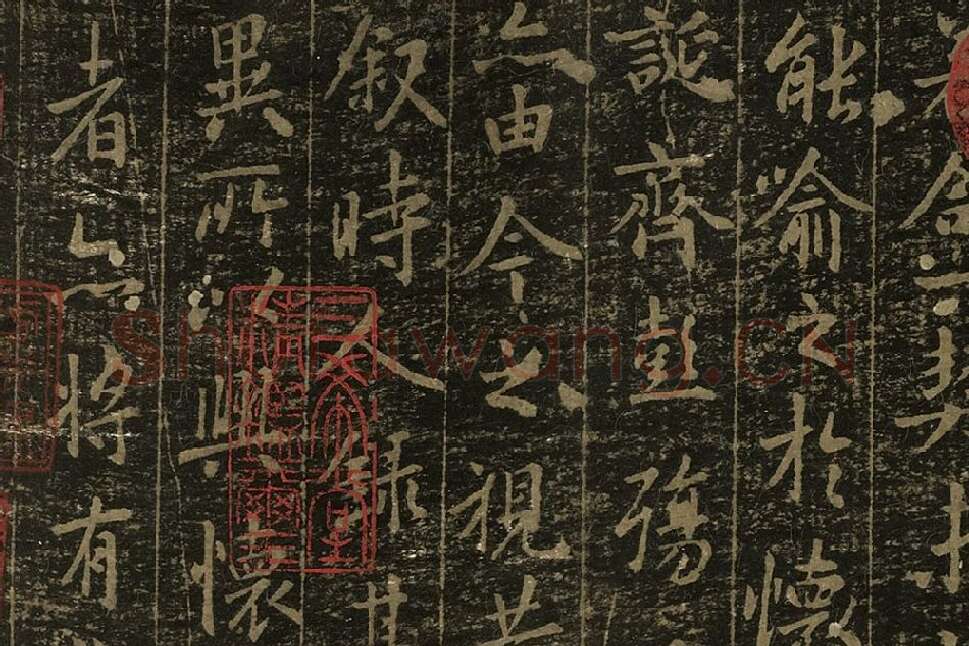 合一契
能喻之於懷
誕齊彭殤
亦由今之視昔
叙時人錄其
異所以興懷
者亦將有
Shufawang.CN